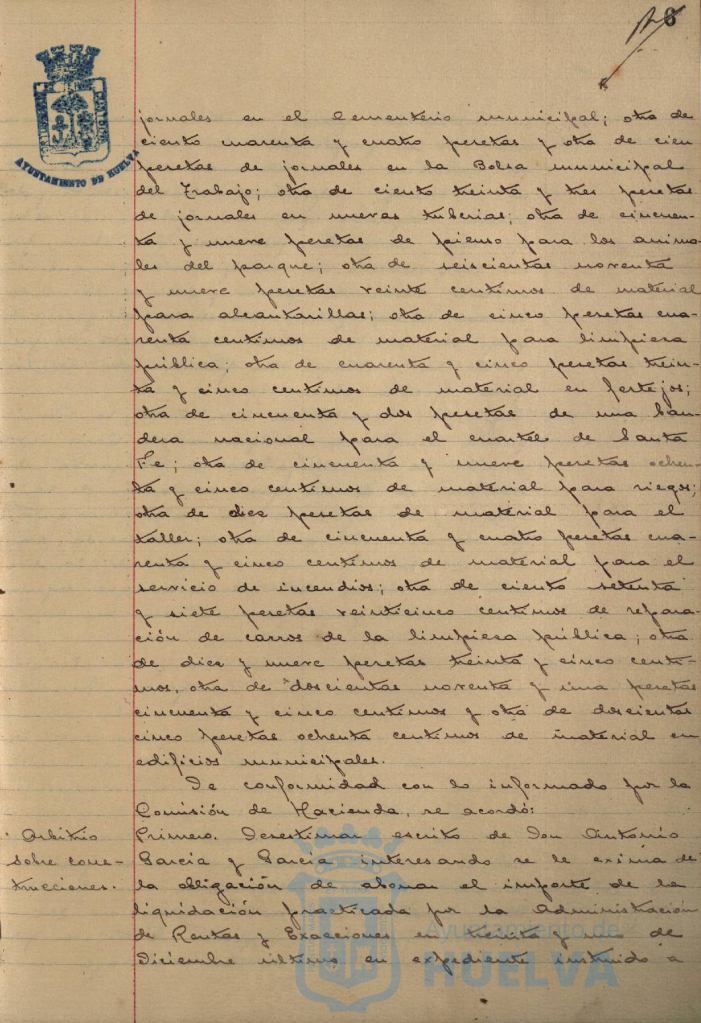 8
AYUNTAMIENTO DE HUELVA
jornales en el Cementerio municipal; otra de
ciento cuarenta y cuatro pesetas y otra de cien
pesetas de jornales en la Bolsa municipal
del Trabajo; otra de ciento treinta y tres pesetas
de jornales en nuevas tuberias; otra de cincuen-
ta y nueve pesetas de pienso para los anima-
les del parque; otra de seiscientas noventa
y nueve pesetas veinte centimos de material
para alcantarillas; otra de cinco pesetas cua-
renta centimos de material para limpiesa
pública; otra de cuarenta y cinco pesetas trein-
ta y cinco centimos de material en festejos;
otra de cincuenta y dos pesetas de una ban-
dera nacional para el cuartel de Santa
Fe; otra de cincuenta y nueve pesetas ochen-
ta y cinco centimos de material para riegos;
otra de diez pesetas de material para el
taller; otra de cincuenta y cuatro pesetas cua-
renta y cinco centimos de material para el
servicio de incendios; otra de ciento setenta
y siete pesetas veinticinco centimos de repara-
ción de carros de la limpiesa pública; otra
de diez y nueve pesetas treinta y cinco centi-
mos, otra de doscientas noventa y una pesetas
cincuenta y cinco centimos y otra de doscientas
cinco pesetas ochenta centimos de material en
edificios municipales.
De conformidad con lo informado por la
Comisión de Hacienda, se acordó:
Arbitrio
sobre cons-
trucciones.
Primero. Desestimar escrito de Don Antonio
Garcia y Garcia interesando se le exima de
la obligación de abonar el importe de la
liquidación practicada por la Administración
de Rentas y Exacciones en treinta y uno de
Diciembre último en expediente instruido a
Ayuntamiento de
HUELVA